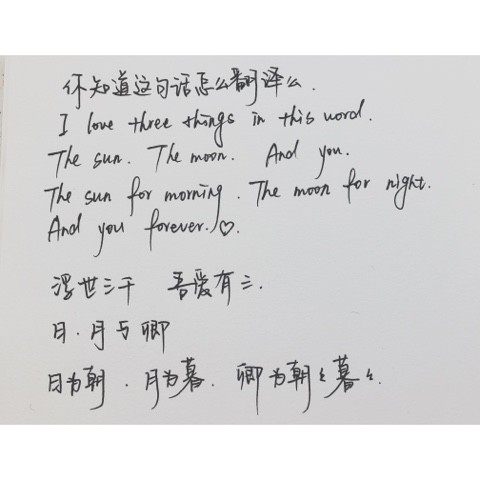 你知道这句话怎么翻译么.
I love three things in this word.
The sun. The moon. And you.
The sun for morning. The moon for night.
And you forever.♡.
浮世三千 吾爱有三.
日.月与卿
日为朝.月为暮.卿为朝々暮々.